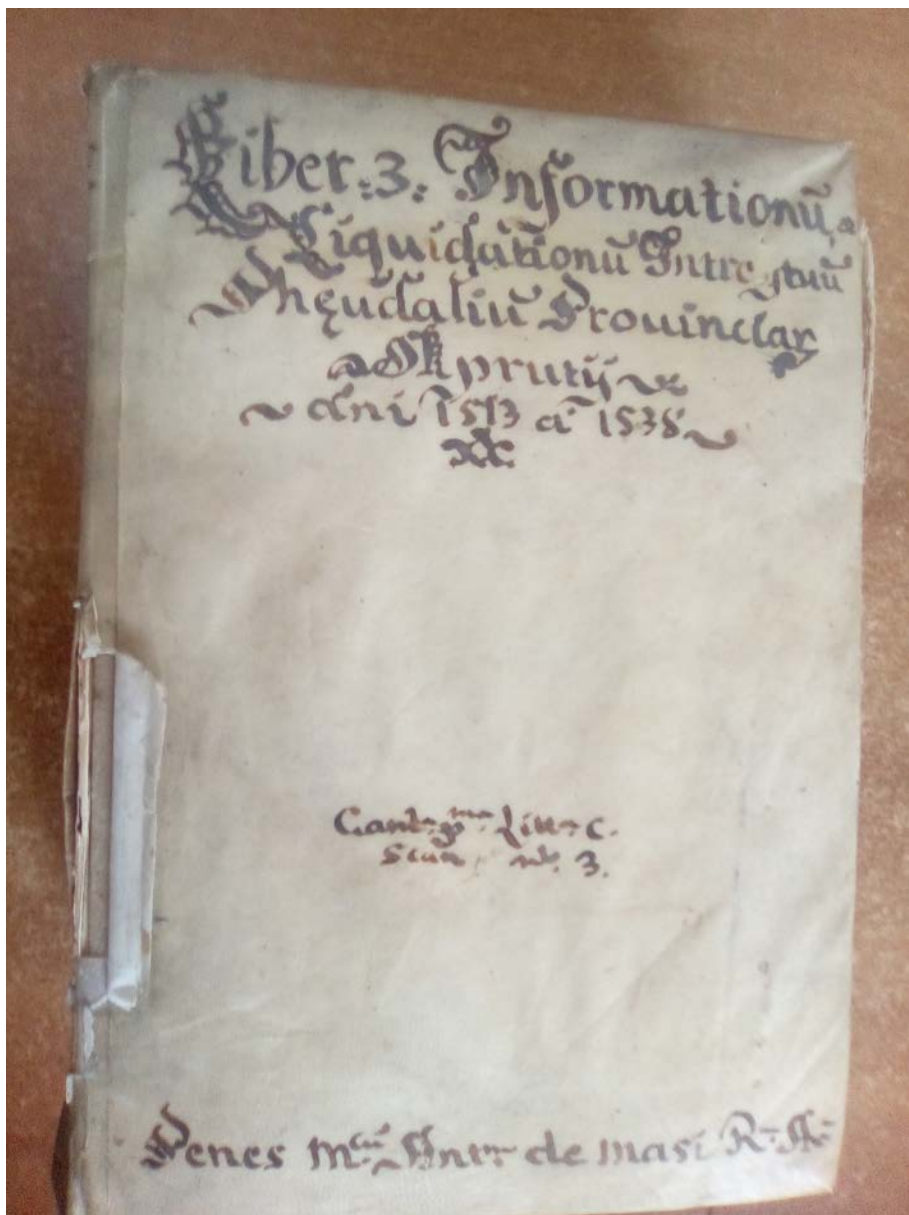 Liber .3. Informationũ
Liquidationũ Introytuũ
Pheudaliũ Prouinciar
Aprutij
ãni 1513 a 1538
Cant. Litt. C.
Scan. n. 3.
Penes M. de Masi R.